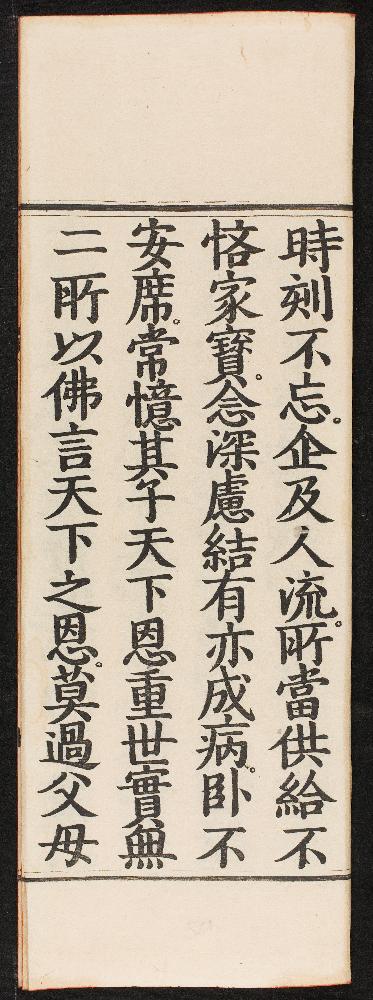 時刻不忘。企及人流。所當供給不
悋家寳。念深慮結有亦成病。卧不
安席。常憶其子天下恩重世實無
二所以佛言天下之恩。莫過父母